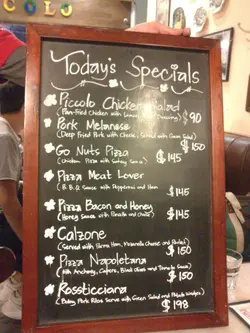 COLO
Today's Specials
Piccolo Chicken Salad
(Pan-Fried Chicken with Dressing) $90
Pork Melanese
(Deep Fried Pork with Cheese, Served with Green Salad)
$150
Go Nuts Pizza
(Chicken Pizza with Satay Sauce) $145
Pizza Meat Lover
(B.B.Q Sauce with Pepperoni and Ham
$145
Pizza Bacon and Honey
(Honey Sauce with and Chilli) $145
Calzone
(Served with Parma Ham, Mozzarella Cheese and
$150
Pizza Napoletana
(With Anchovy, Capers, Black Olives and Tomato Sauce)
$150
Rossticciana
(Baby Pork Ribs Serve with Green Salad and Potato Wedges)
$198